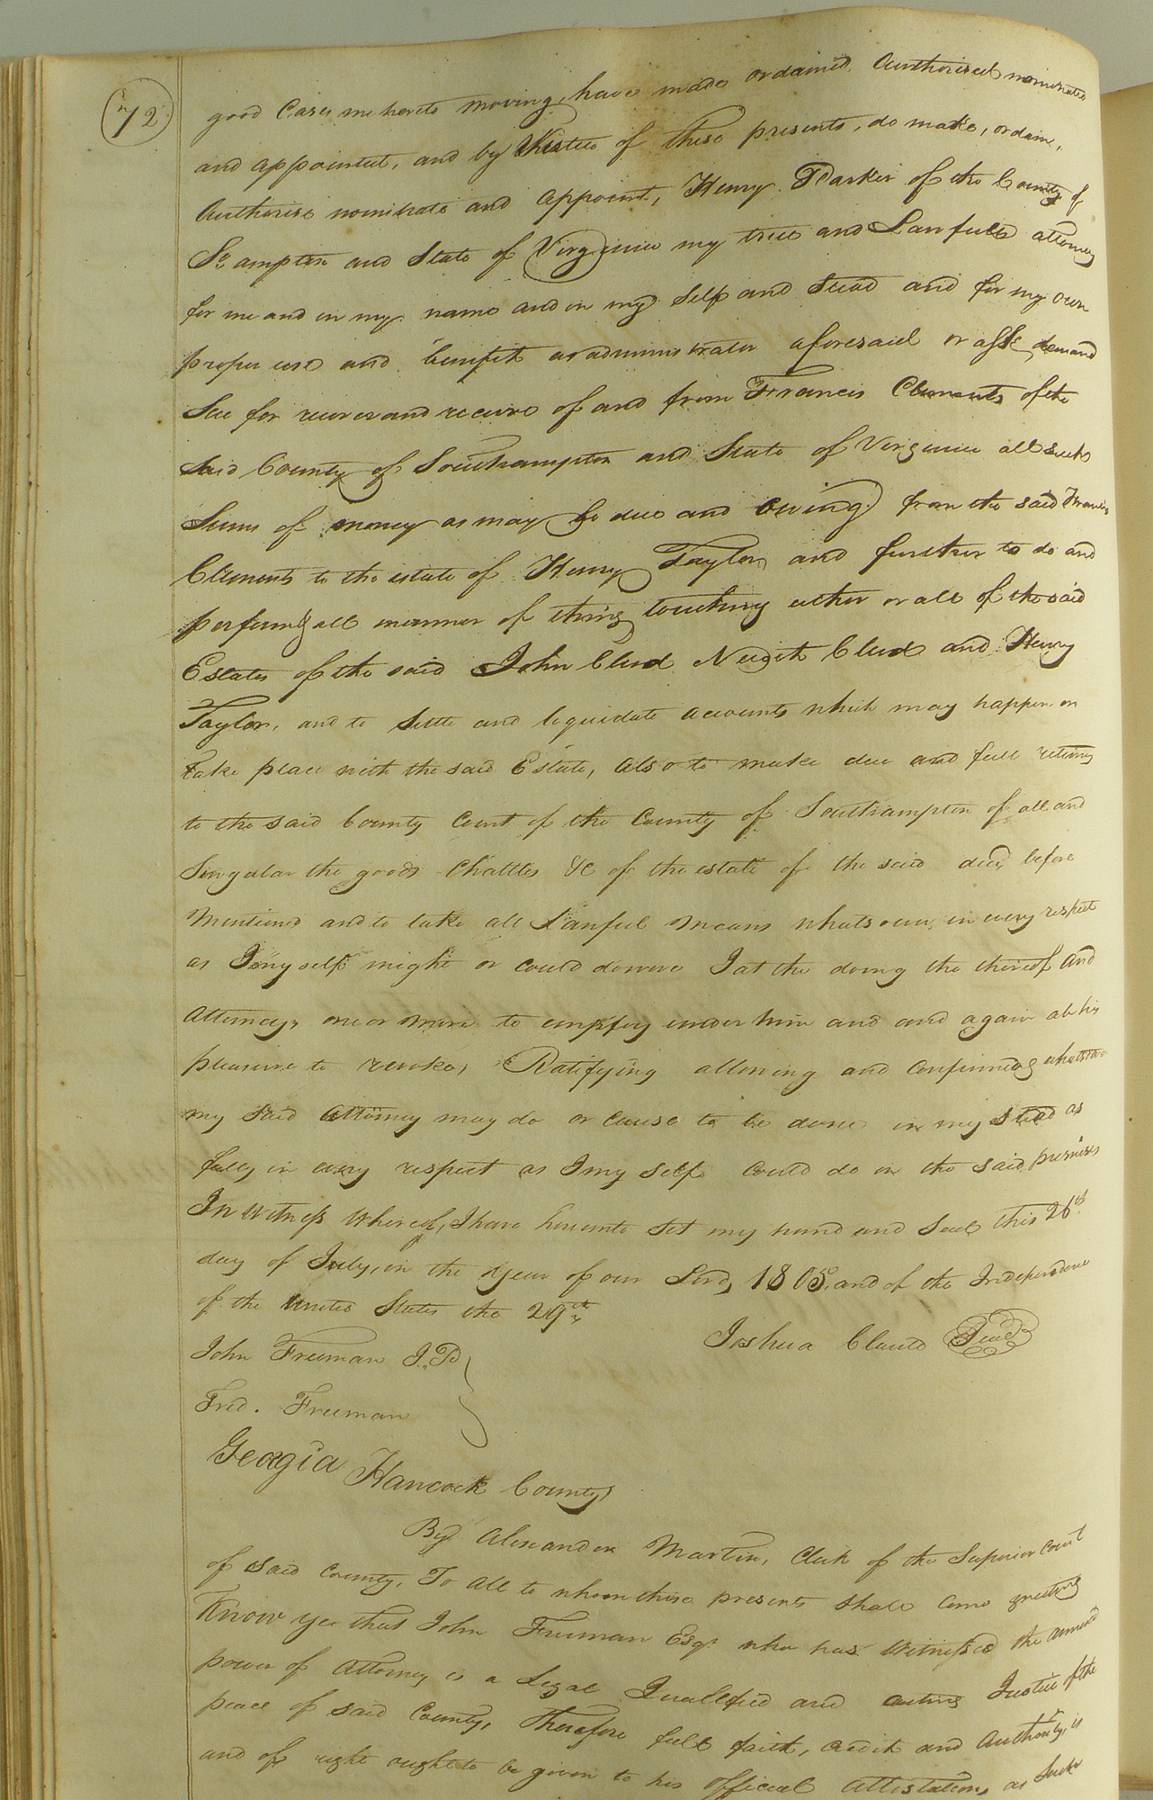 72
good Cases me hereto moving, have made ordained Authorised nominated
and appointed, and by Virtue of these presents, do make, ordain,
Authorise nominate and appoint, Henry Parker of the County of
So ampton and State of Virginia my true and Lawfull attorney
for me and in my name and in my Self and Stead and for my own
proper use and benefit as administrator aforesaid or ask demand
Sue for recover and receive of and from Francis Clements of the
Said County of Southampton and State of Virginia all such
Sums of money as may be due and owing from the said Francis
Clements to the estate of Henry Taylor and further to do and
perform all manner of thing touching either or all of the said
Estates of the said John Clud Clud and Henry
Taylor, and to Settle and liquidate accounts which may happen or
take place with the said Estate, also to make due and full returns
to the said County Court of the County of Southampton of all and
Singular the goods Chattles &c of the estate of the said decd before
Mentiond and to take all Lawful Means whatsoever, in every respect
as I my self might or could do were I at the doing the thereof And
Attorneys one or more to employ under him and and again at his
pleasure to revoke, Ratifying allowing and confirming whatsoever
my said Attorney may do or cause to be done in my Stead as
fully in every respect as I my self could do in the said premises
In Witness Whereof, I have hereunto Set my hand and Seal this 26th
day of July, in the year of our Lord, 1805, and of the Independence
of the United States the 29th
Joshua Claud Seal
John Freeman J. P
Fred. Freeman
Georgia Hancock County
By Alexander Martin, Clerk of the Superior Court
of said County, To all to whom these presents shall Come greeting
Know ye that John Freeman Esqr who has Witnessed the annexed
power of Attorney is a Legal Qualified and acting Justice of the
peace of said County, Therefore full faith, credit and Authority, is
and of right ought to be given to his official attestations, as Such